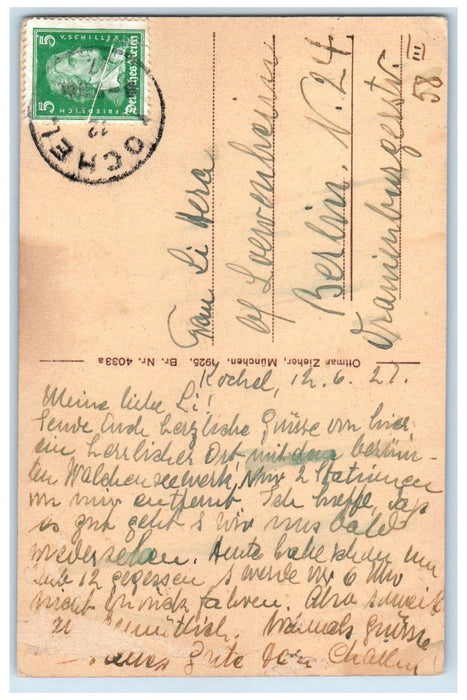 5 Deutsches Reich 5
FRIEDRICH V. SCHILLER
KOCHEL
12
Frau Li Hera
b/ Loewenherm
Berlin. N. 24
Oranienburgerstr.
58 III
Ottmar Zieher, München. 1925. Br. Nr. 4033a
Kochel, 12.6.27.
Meine liebe Li!
Sende Euch herzliche Grüsse von hier
ein herrlicher Ort mit dem berühm-
ten Walchenseewerk, nur 2 Stationen
von mir entfernt. Ich hoffe, das
es gut geht & wir uns bald
wiedersehen. Heute habe schon um
12 gegessen & werde vor 6 Uhr
nicht zurück fahren. Also soweit
gemütlich. Grüsse
Grete